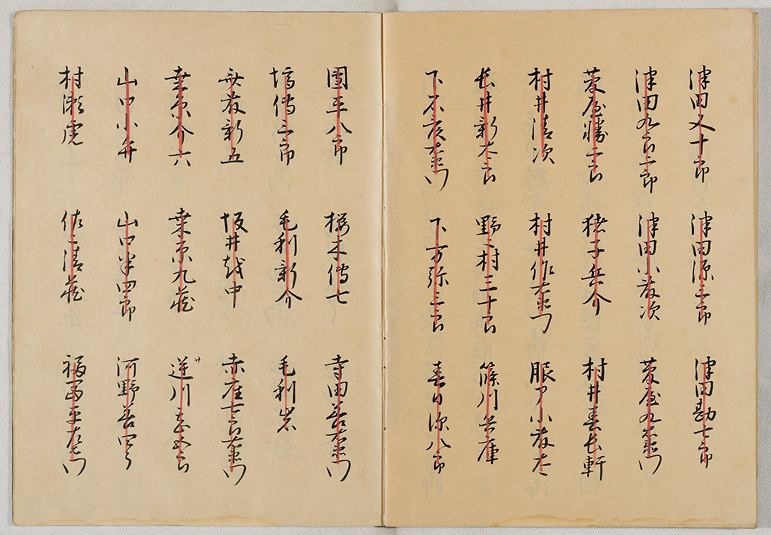 津田又十郎 津田源三郎 津田勘七郎
津田九郎二郎 津田小藤次 菅屋九右衛門
菅屋勝二郎 猪子兵介 村井春長軒
村井清次 村井作右衛門 服部小藤太
永井新太郎 野々村三十郎 篠川兵庫
下石彦右衛門 下方弥三郎 春日源八郎
団平八郎 桜木伝七 寺田善右衛門
塙伝三郎 毛利新介 毛利岩
安藤新五 坂井越中 赤座七郎右衛門
桑原介六 桑原九蔵 逆川喜五郎 サ
山口小弁 山口半四郎 河野善四郎
村瀬虎 佐々清蔵 福富平左衛門